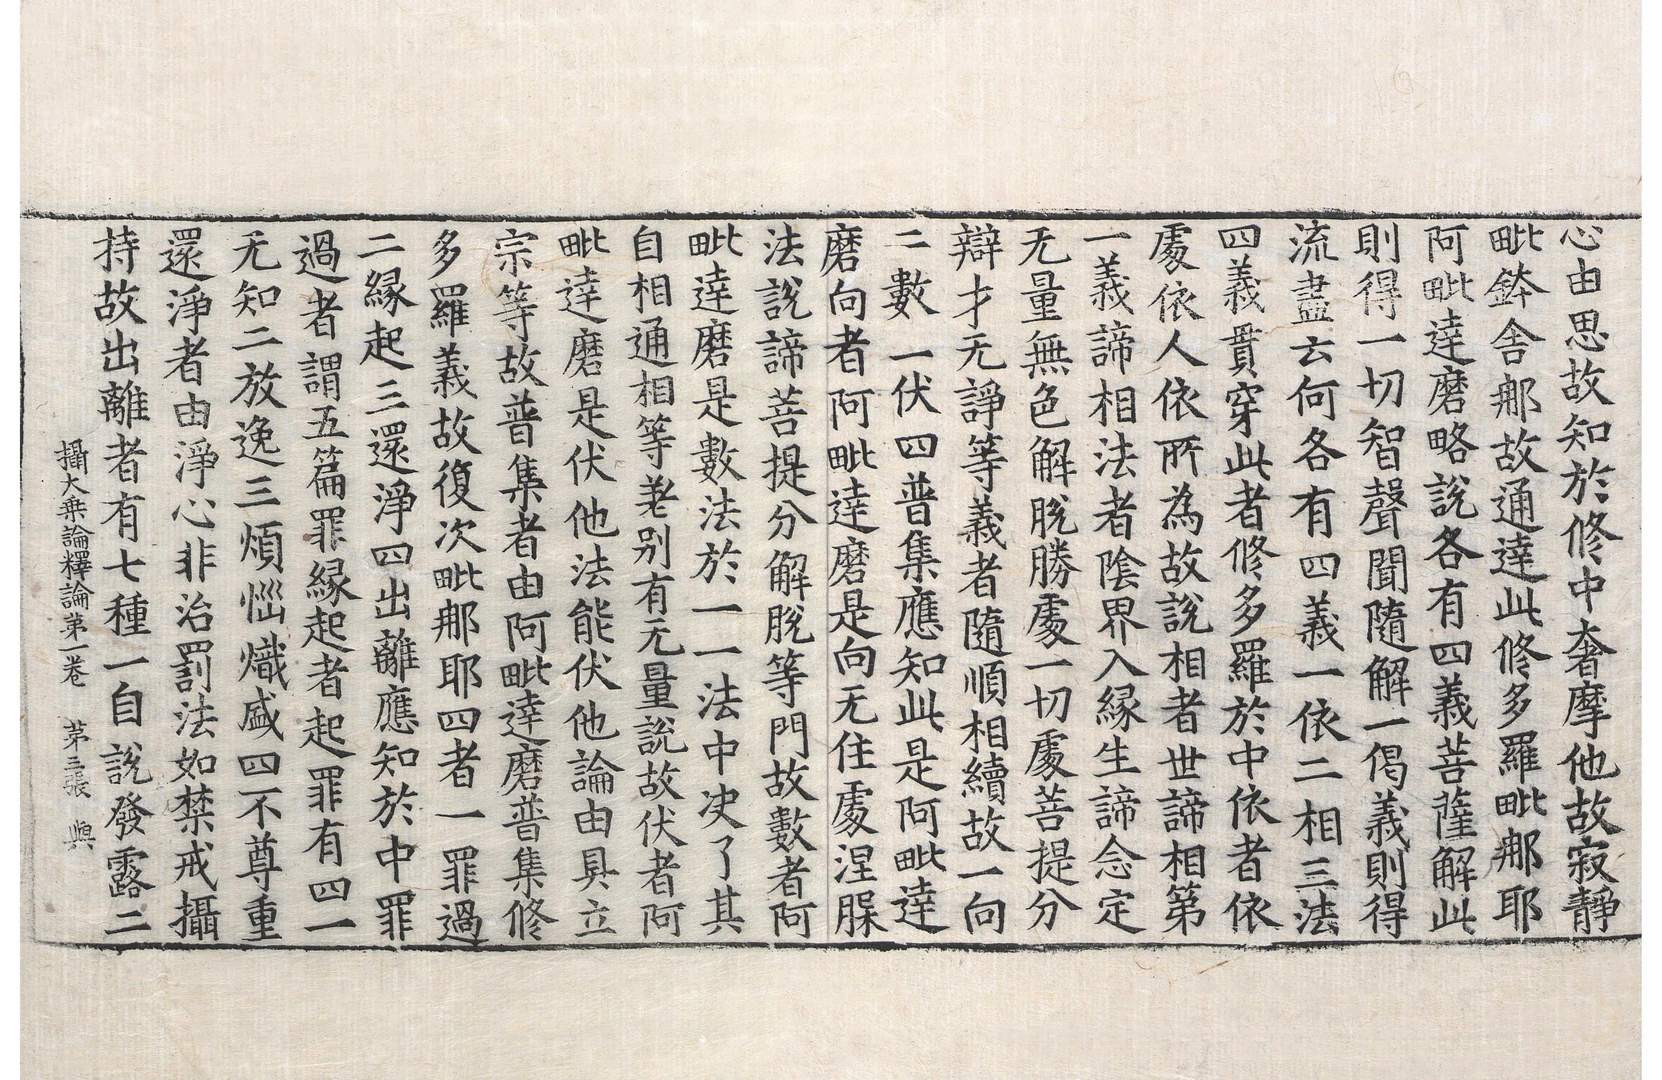 心由思故知於修中奢摩他故寂靜
毗鉢舍那故通達此修多羅毗那耶
阿毗達磨略說各有四義菩薩解此
則得一切智聲聞隨解一偈義則得
流盡云何各有四義一依二相三法
四義貫穿此者修多羅於中依者依
處依人依所為故說相者世諦相第
一義諦相法者陰界入緣生諦念定
无量無色解脫勝處一切處菩提分
辯才无諍等義者隨順相續故一向
二數一伏四普集應知此是阿毗達
磨向者阿毗達磨是向无住處涅槃
法說諦菩提分解脫等門故數者阿
毗達磨是數法於一一法中決了其
自相通相等差别有无量說故伏者阿
毗達磨是伏他法能伏他論由具立
宗等故普集者由阿毗達磨普集修
多羅義故復次毗那耶四者一罪過
二緣起三還淨四出離應知於中罪
過者謂五篇罪緣起者起罪有四一
无知二放逸三煩惱熾盛四不尊重
還淨者由淨心非治罰法如禁戒攝
持故出離者有七種一自說發露二
攝大乘論釋論第一卷 第三張 與